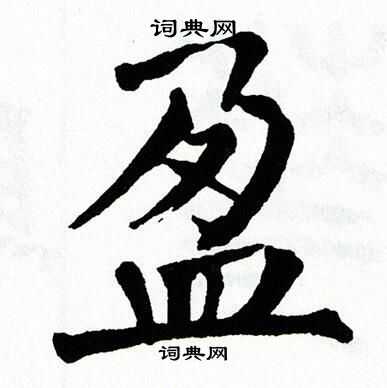 词典网
盈
词典网